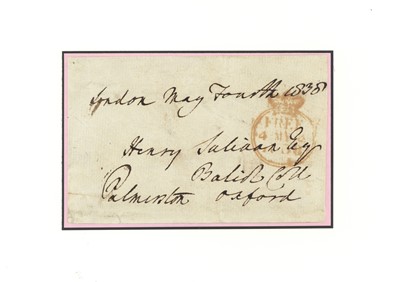 London May Fourth 1838
FREE
4 MY 4
Henry Sulivan Esq
Baliol Coll
Palmerston Oxford